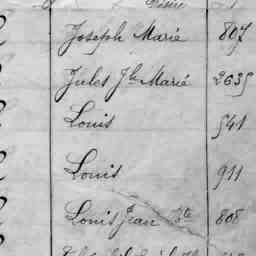 Joseph Marie 807
Jules Jh Marie 2635
Louis 541
Louis 911
Louis Jean Bte 808